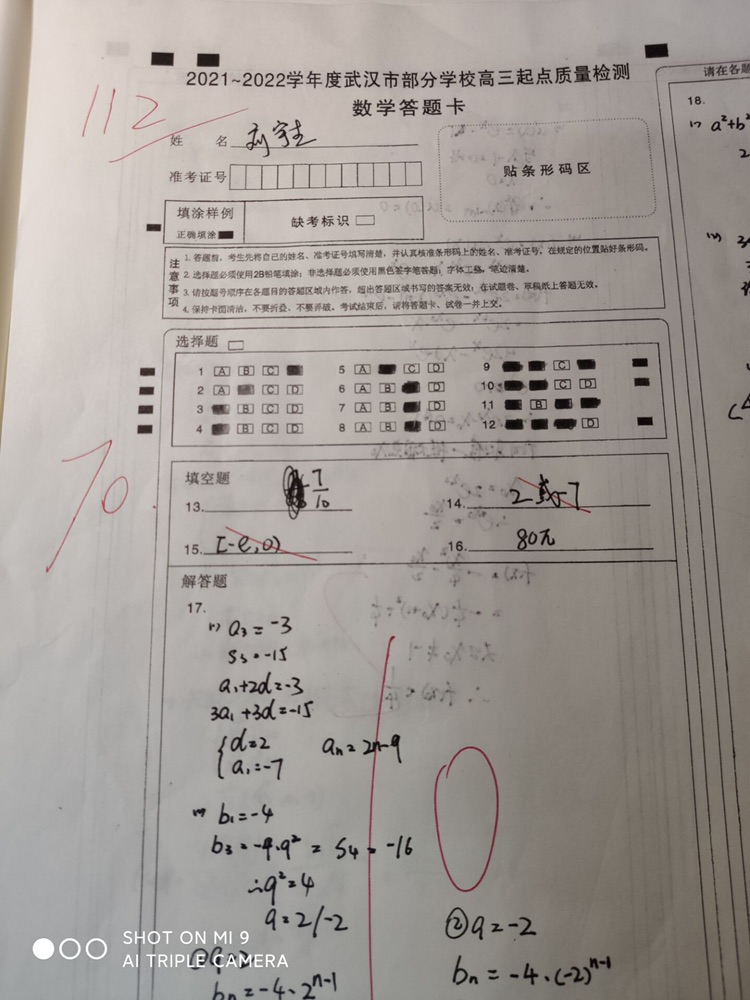 112
2021~2022学年度武汉市部分学校高三起点质量检测
数学答题卡
姓 名
准考证号
贴条形码区
填涂样例
正确填涂
缺考标识
注意事项
1. 答题前，考生先将自己的姓名、准考证号填写清楚，并认真核准条形码上的姓名、准考证号，在规定的位置贴好条形码。
2. 选择题必须使用2B铅笔填涂；非选择题必须使用黑色签字笔答题；字体工整，笔迹清楚。
3. 请按题号顺序在各题目的答题区域内作答，超出答题区域书写的答案无效；在试题卷、草稿纸上答题无效。
4. 保持卡面清洁，不要折叠、不要弄破。考试结束后，请将答题卡、试卷一并上交。
选择题
1 A B C 5 A C D 9 C
2 A C D 6 A B D 10 C D
3 B C D 7 A B D 11 B
4 B C D 8 A B D 12 D
70
填空题
13. 7/10
14. 2或-7
15. [-e,0)
16. 80π
解答题
17.
(1) a₃=-3
S₃=-15
a₁+2d=-3
3a₁+3d=-15
{d=2
a₁=-7
aₙ=2n-9
(2) b₁=-4
b₃=-4·q²=S₄=-16
∴q²=4
q=2/-2
②q=-2
bₙ=-4·2ⁿ⁻¹
bₙ=-4·(-2)ⁿ⁻¹
请在各题
18.
(1) a²+b²
SHOT ON MI 9
AI TRIPLE CAMERA